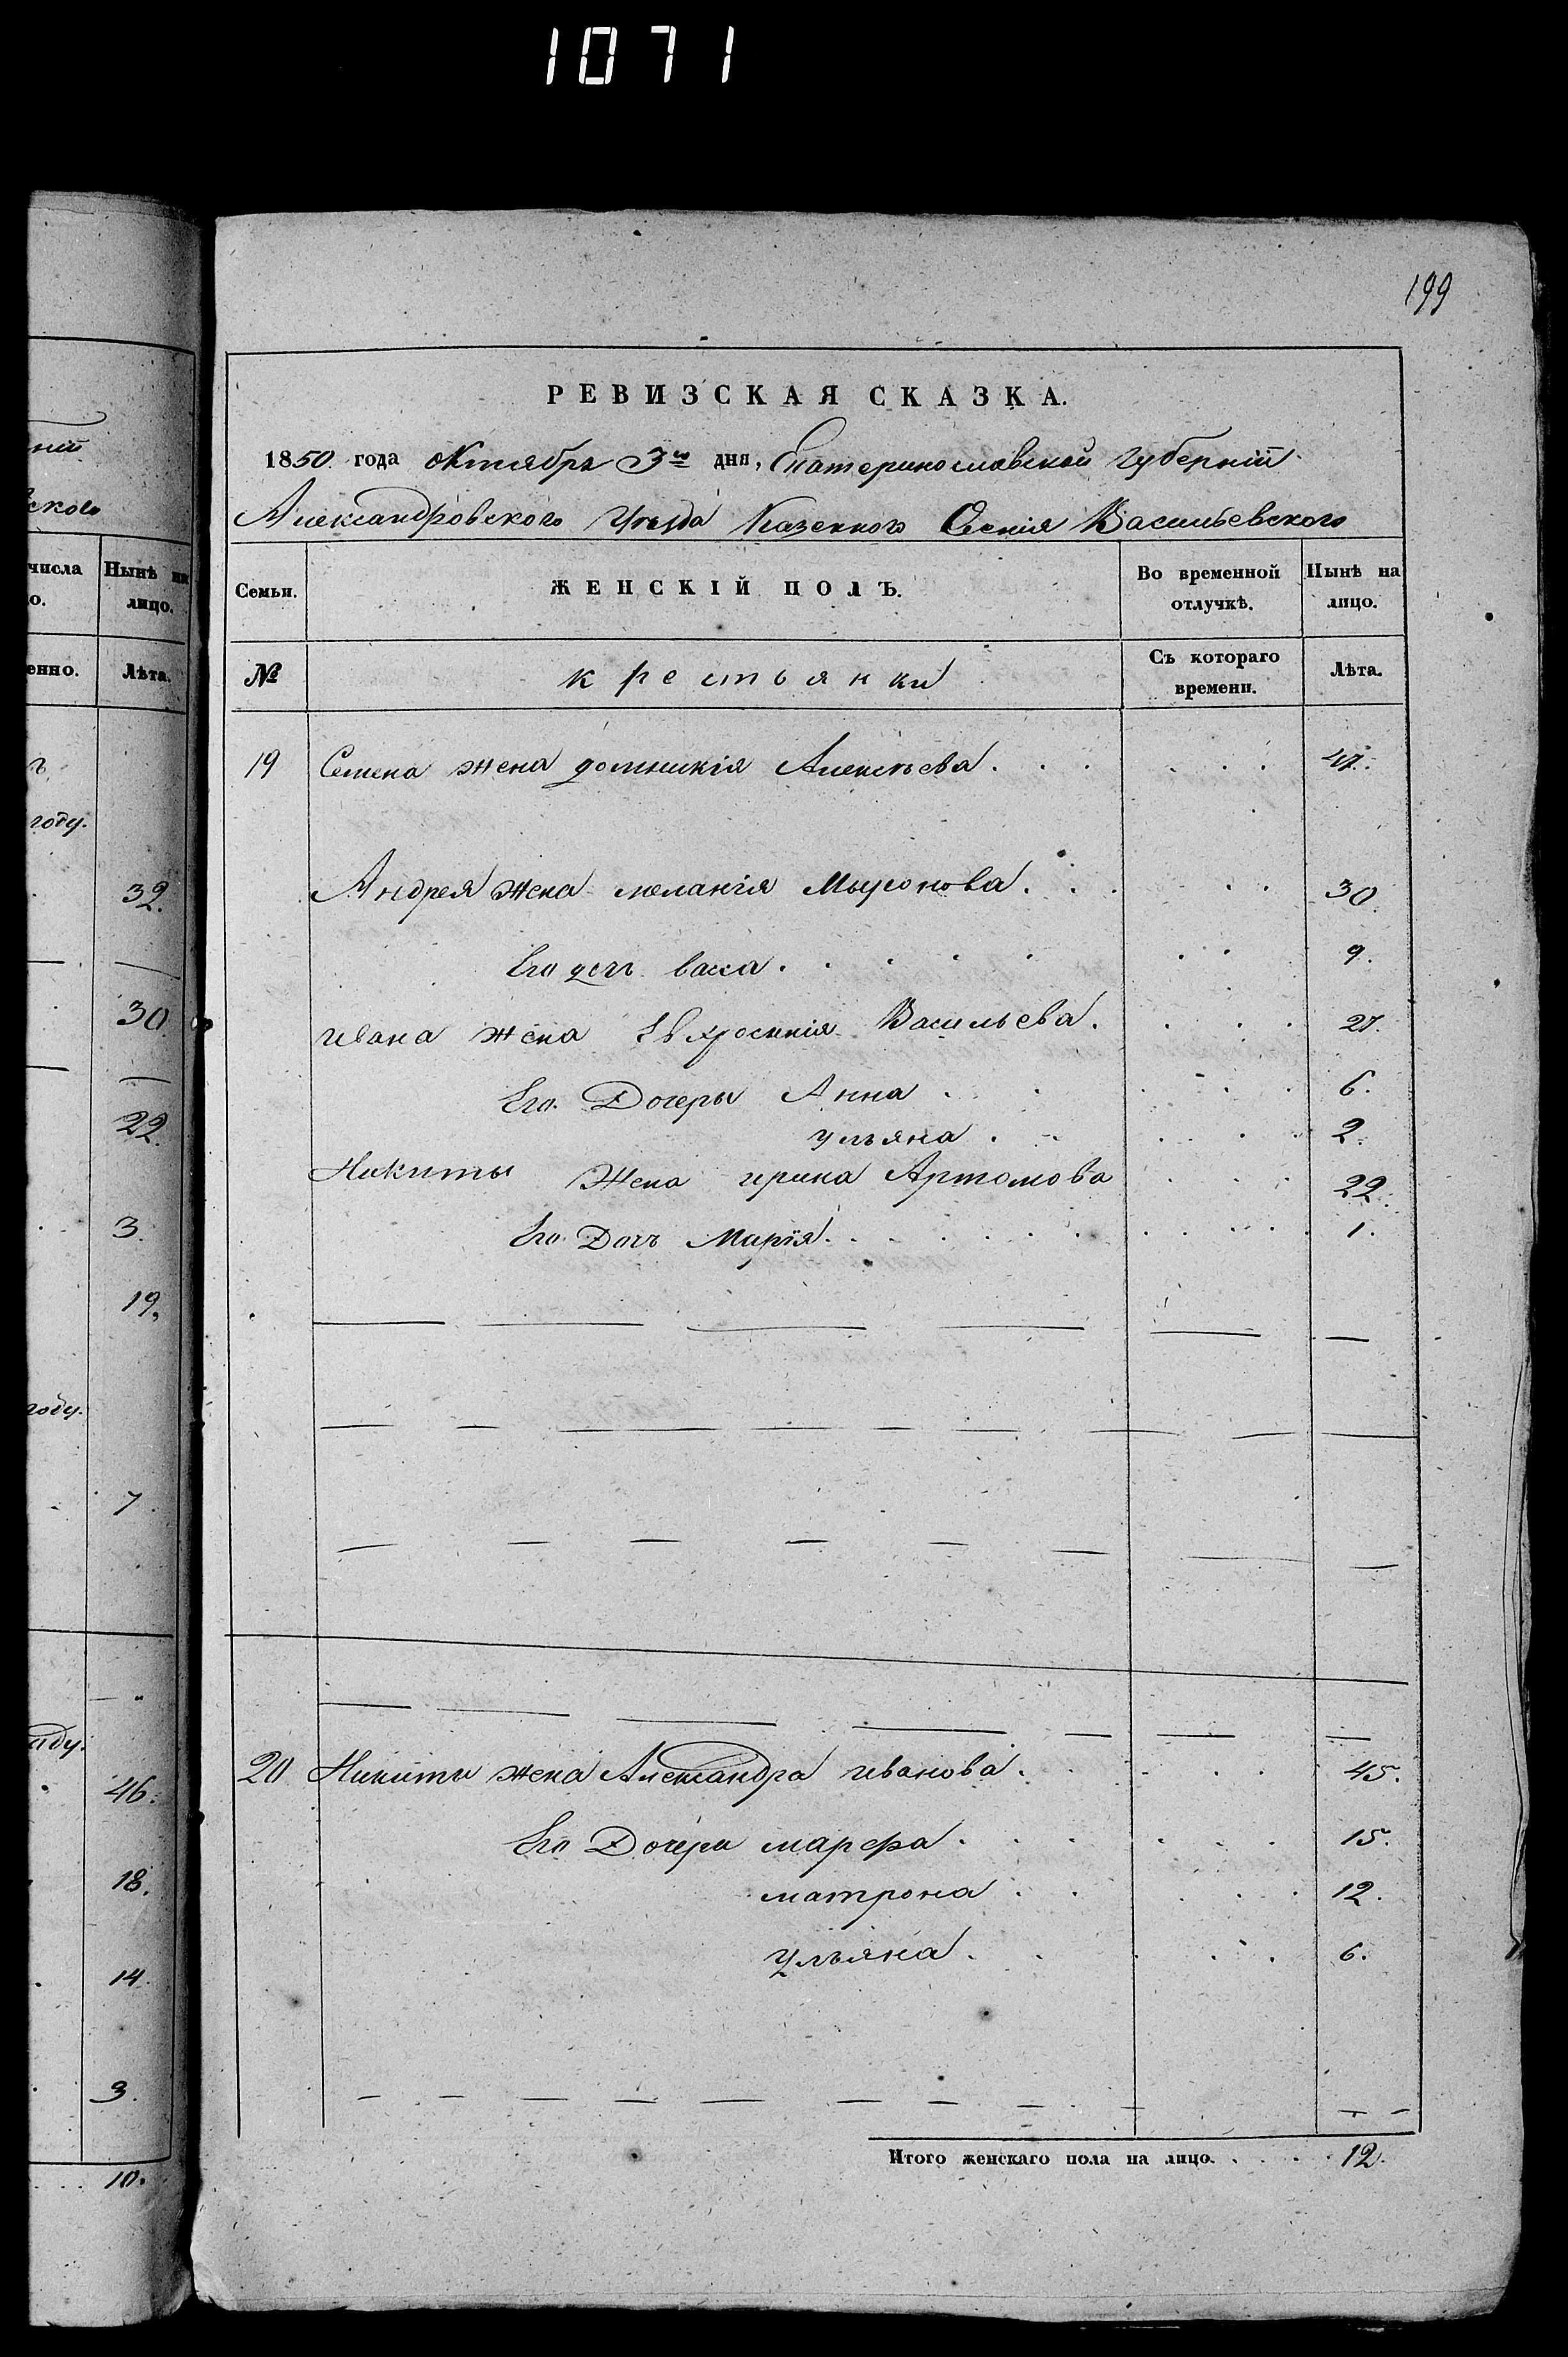 1071
199
РЕВИЗСКАЯ СКАЗКА.
1850 года октября 3го дня, Екатеринославской губерніи
Александровского Уезда Казенного Селенія Васильевского
Семьи. ЖЕНСКІЙ ПОЛЪ. Во временной отлучкѣ. Нынѣ на лицо.
№ крестьянки Съ котораго времени. Лѣта.
19 Семена жена домникія Алексѣева 47.
Андрея жена меланія Мыронова 30.
Его дочь васса 9.
ивана жена Евхросинія Васильева 27.
Его Дочеры Анна 6.
ульяна 2.
Никиты Жена ирина Артомова 22.
Его Дочь Марія 1.
20 Никиты жена Александра иванова 45.
Его Дочери марфа 15.
матрона 12.
Ульяна 6.
Итого женскаго пола на лицо. 12.
ского
числа Нынѣ на
о. лицо.
енно. Лѣта.
году.
32.
30
22.
3.
19,
году.
7.
аду.
46.
18.
14.
3.
10.